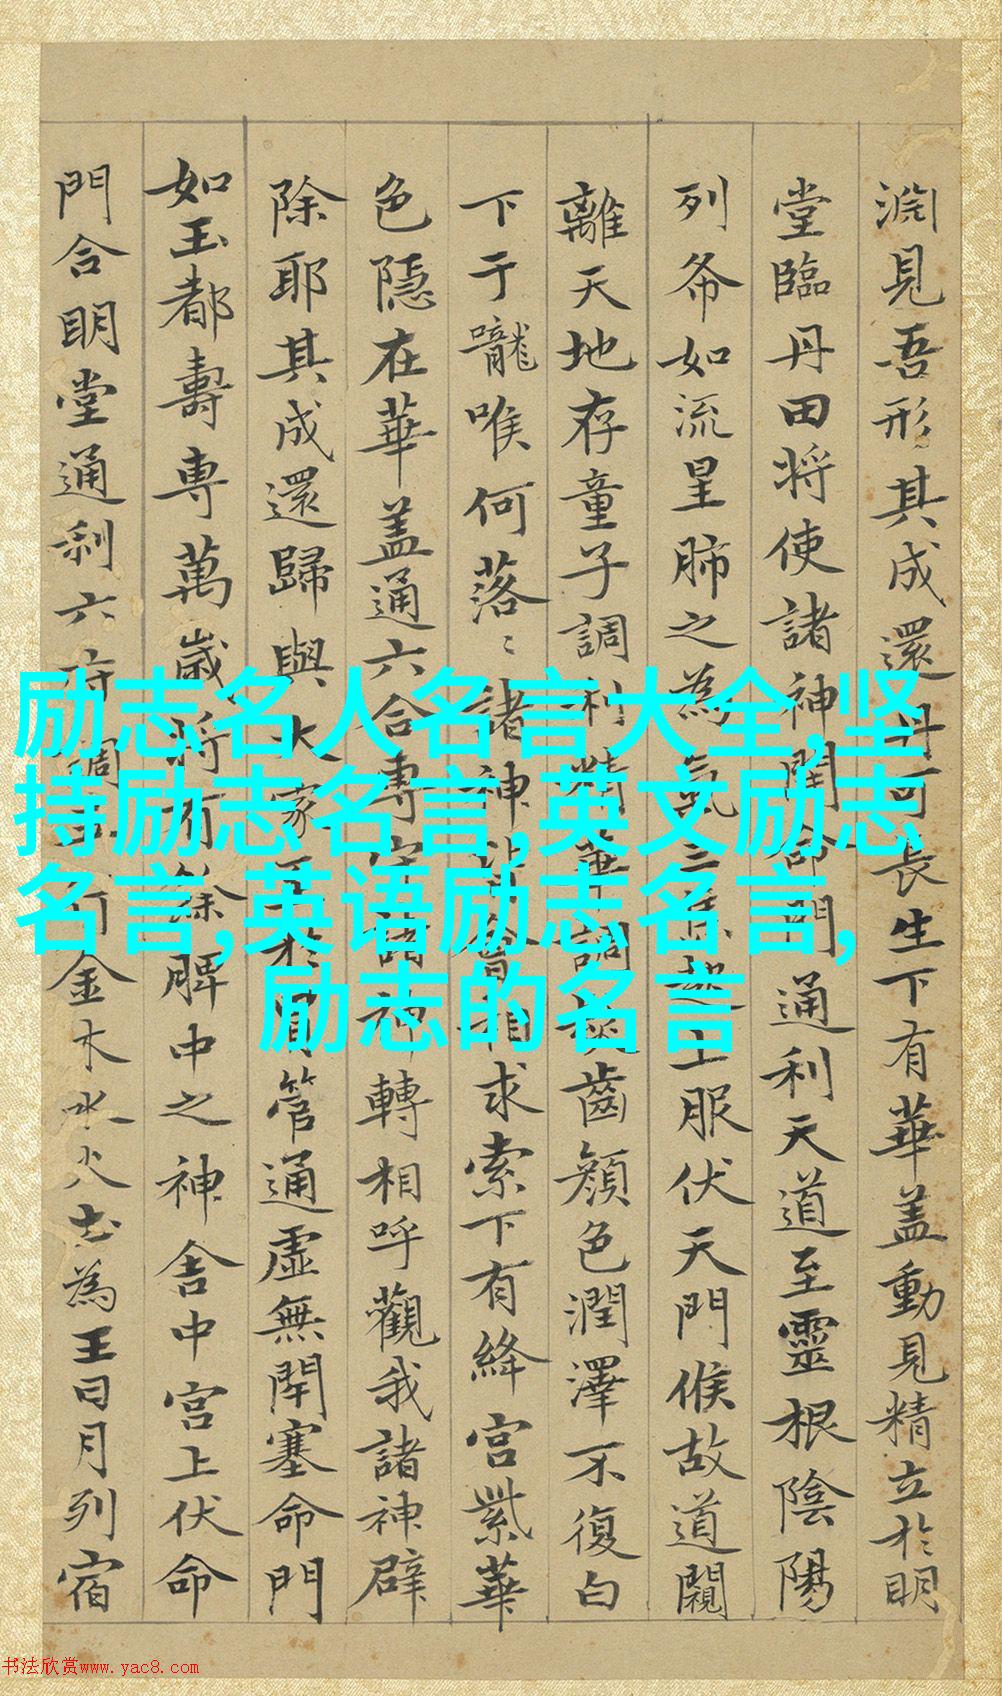 淵見吾形其成還丹可長生下有華盖動見精立於明
堂臨丹田将使諸神開命門通利天道至靈根陰陽
列布如流星肺之為氣三焦起上服伏天門候故道闚
離天地存童子調利精華調髮齒顏色潤澤不復白
下于嚨喉何落〻諸神皆會相求索下有絳宮紫華
色隱在華盖通六合專守諸神轉相呼觀我諸神辟
除耶其成還歸與大家至於胃管通虛無閉塞命門
如玉都壽專萬歲将有餘脾中之神舍中宮上伏命
門合明堂通利六府調五行金木水火土為王日月列宿
励志名人名言大全,坚
持励志名言,英文励志
名言,英语励志名言,
励志的名言
书法欣赏www.yac8.com